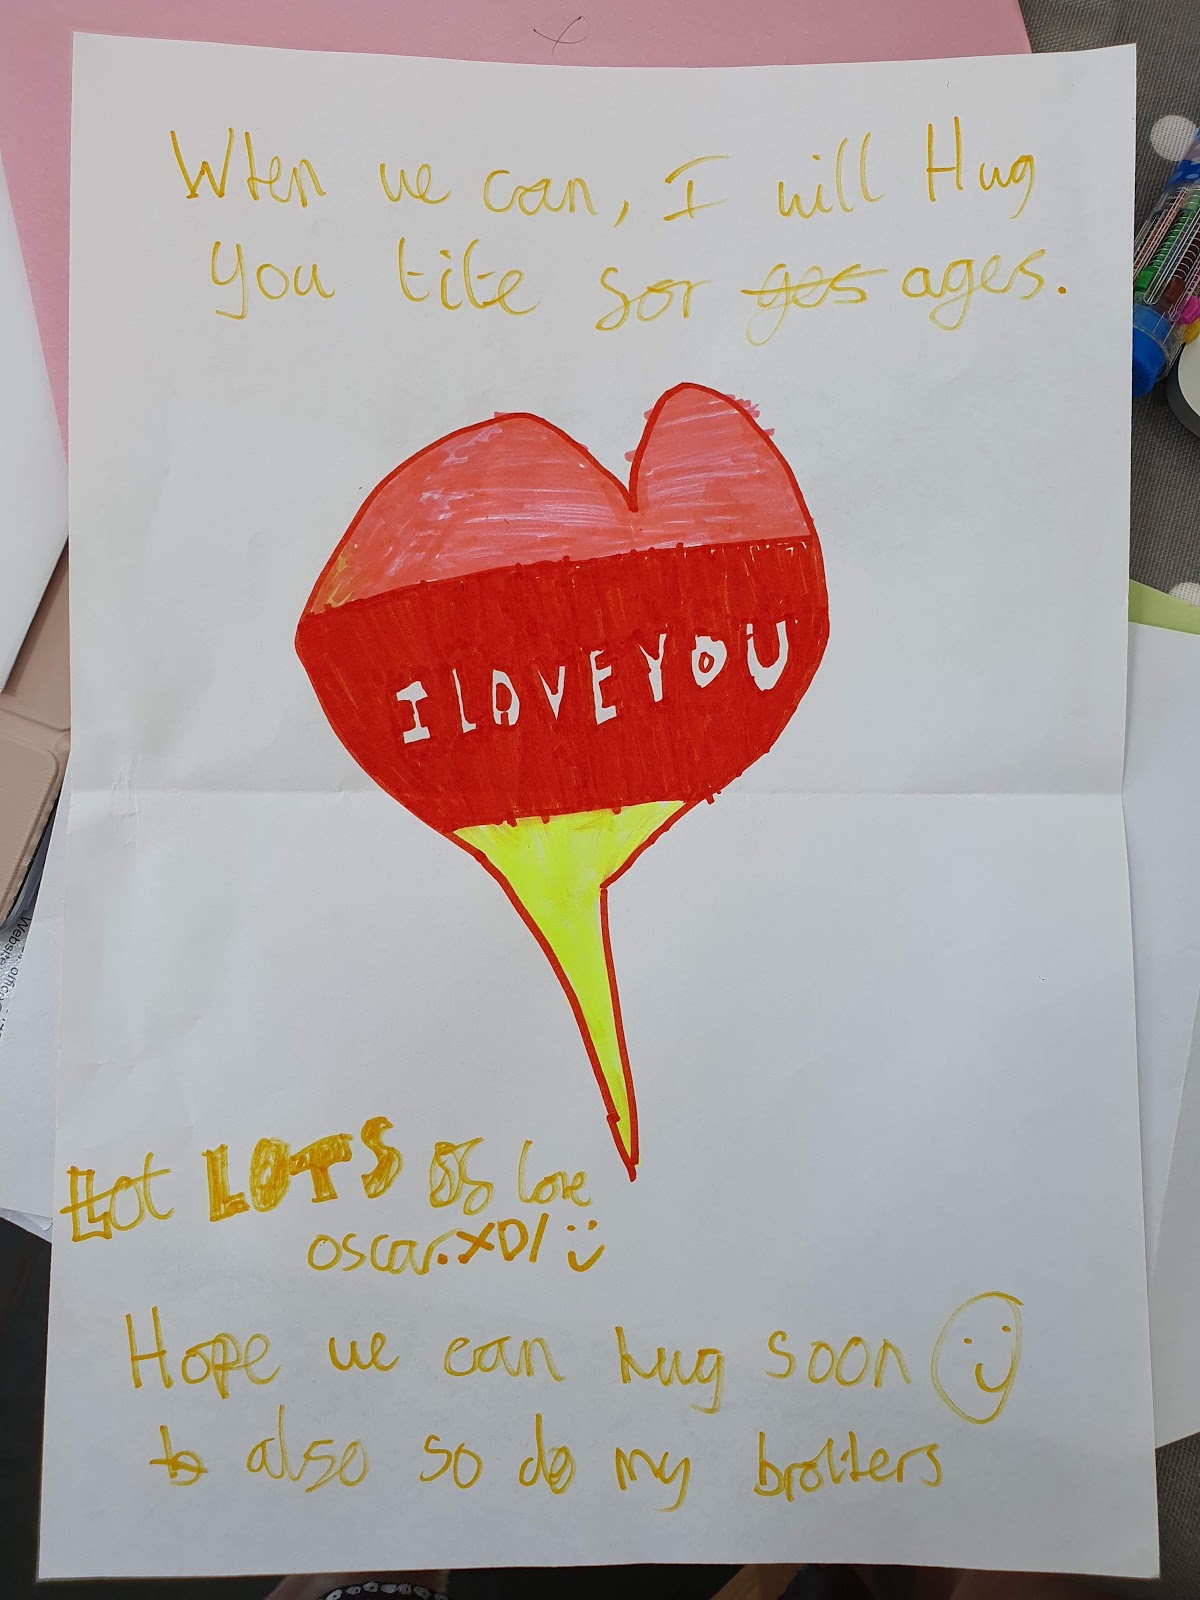 When we can, I will Hug
you tite for ges ages.
I LOVE YOU
Lot LOTS of love
oscar.XO/
Hope we can hug soon
b also so do my brothers
Website:
office@